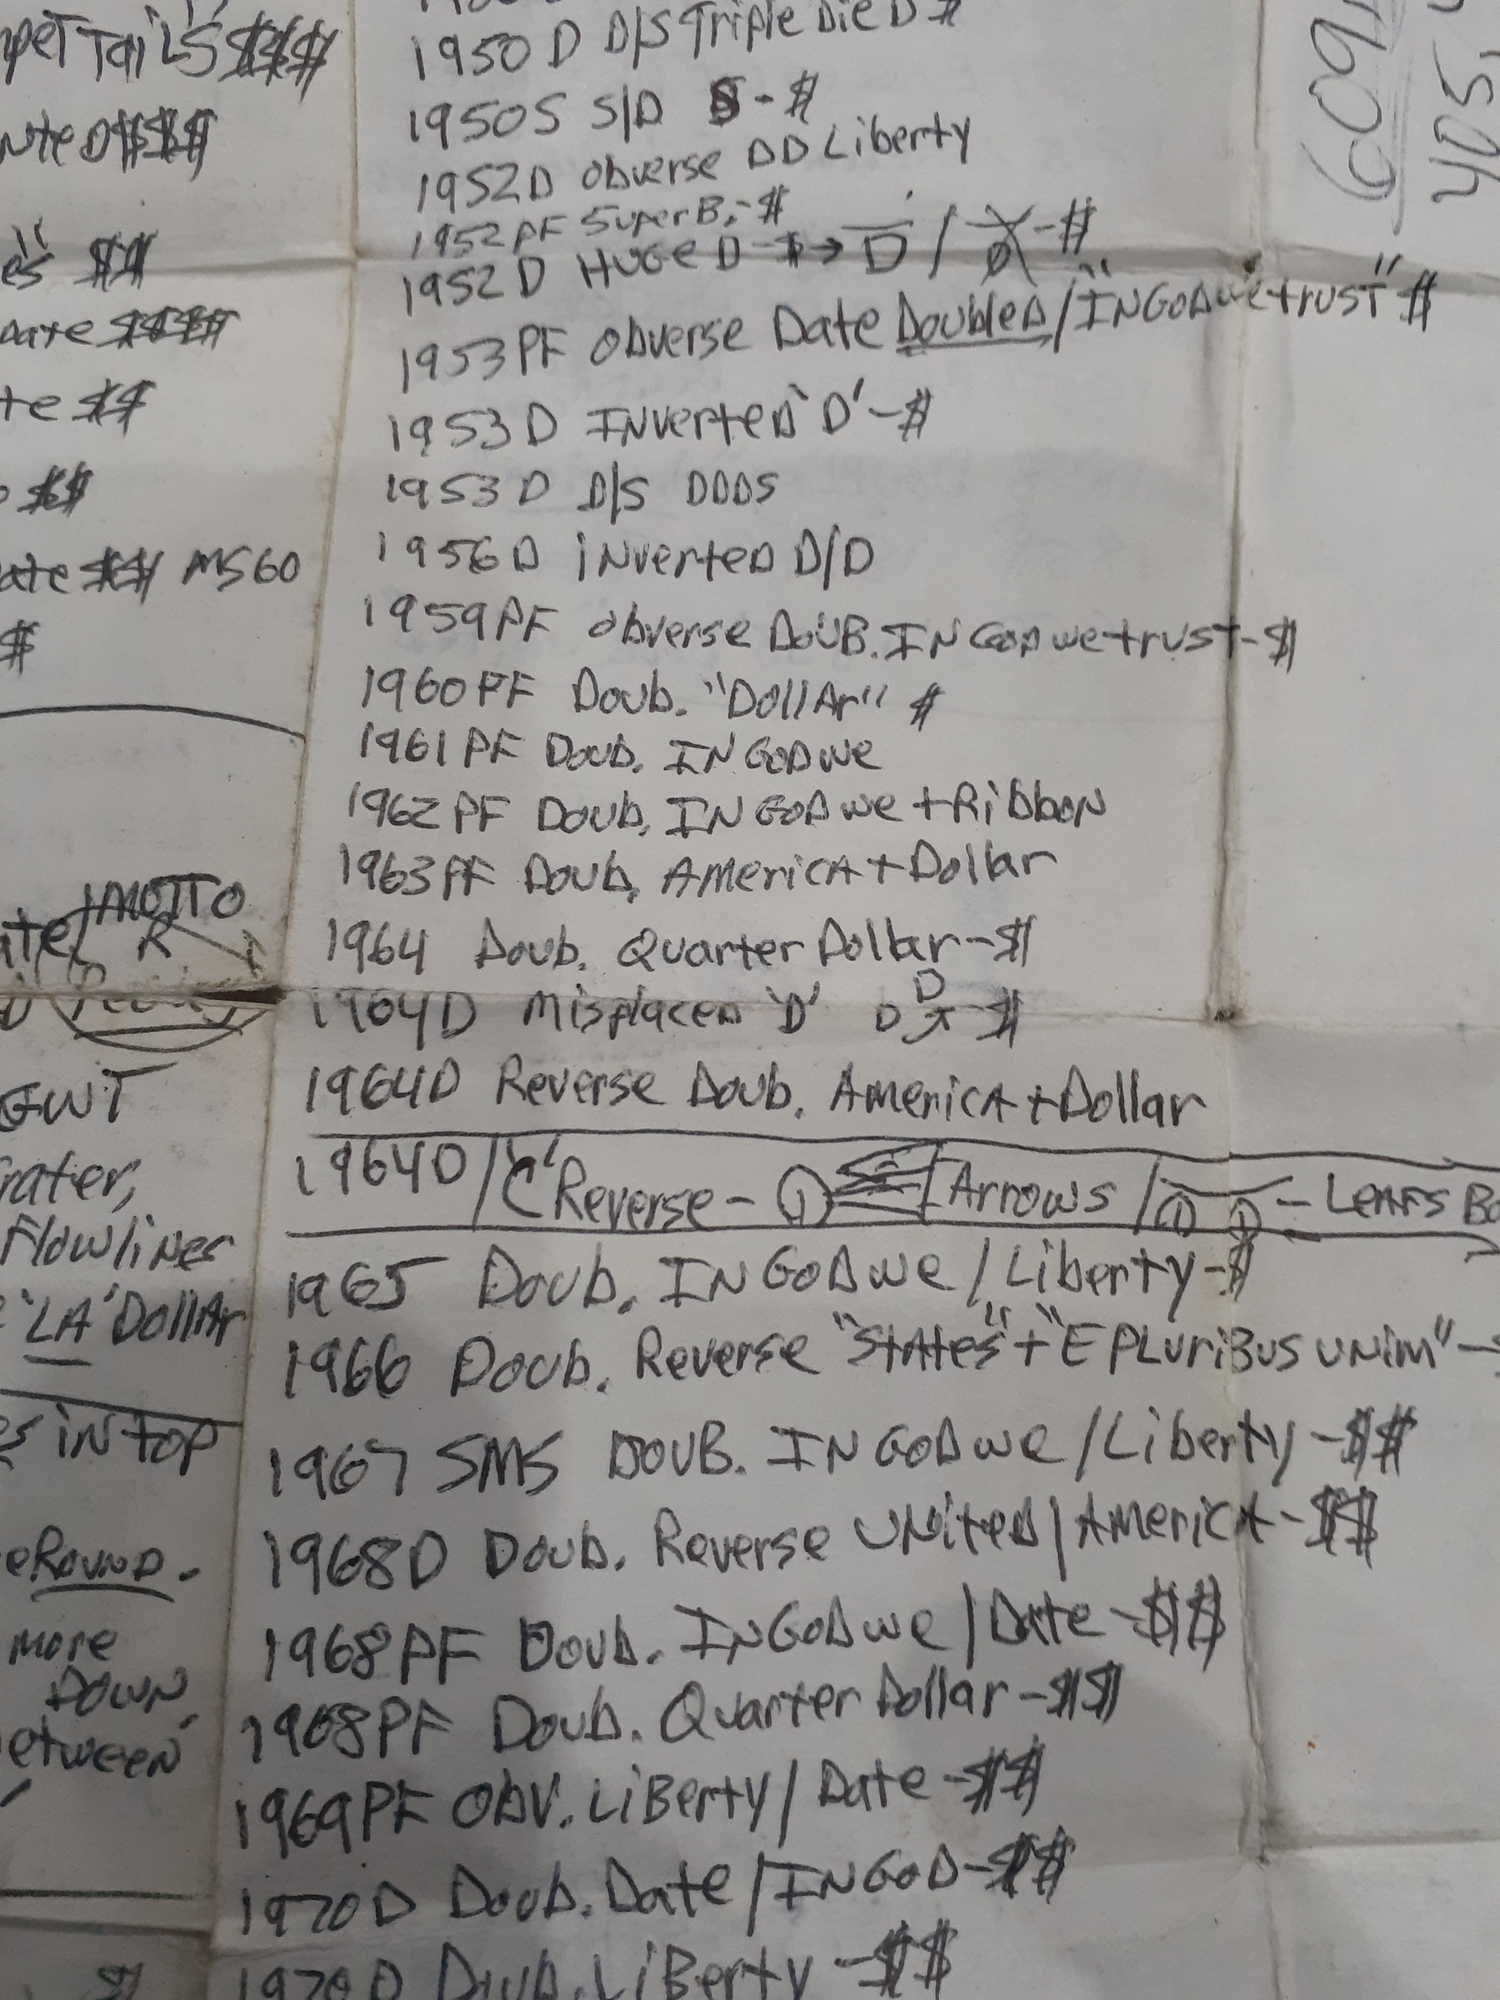 Tails $$$$
D $$$
$$
Date $$$$
te $$
$$
ate $$ MS60
$
MOTTO
R
GWT
rater,
Flowlines
'LA' DollAr
in top
eRound.
more
Down,
etween
1950 D D/S Triple Die D $
1950 S S/D S - $
1952 D Obverse DD Liberty
1952 PF SuperB. - $
1952 D HUGE D - $ → D / D - $
1953 PF Obverse Date Doubled / "IN GOD we trust" $
1953 D INverted 'D' - $
1953 D D/S DDDS
1956 D iNverted D/D
1959 PF Obverse DouB. IN GOD we trust - $
1960 PF Doub. "DollAr" $
1961 PF Doub. IN GOD we
1962 PF Doub. IN GOD we + RibboN
1963 PF Doub. AmericA + Dollar
1964 Doub. Quarter Dollar - $
1964 D Misplaced 'D' D D - $
1964 D Reverse Doub. AmericA + Dollar
1964 D / 'C' Reverse - / Arrows / - LeAfs
1965 Doub. IN GOD we / Liberty - $
1966 Doub. Reverse "StAtes" + "E PLuriBus uNim" -
1967 SMS DOUB. IN GOD we / Liberty - $$
1968 D Doub. Reverse UNited / AmericA - $$
1968 PF Doub. IN GOD we / Date - $$
1968 PF Doub. Quarter Dollar - $$
1969 PF Obv. LiBerty / Date - $$
1970 D Doub. Date / IN GOD - $$
1970 D Doub. LiBerty - $$
609
405,
$